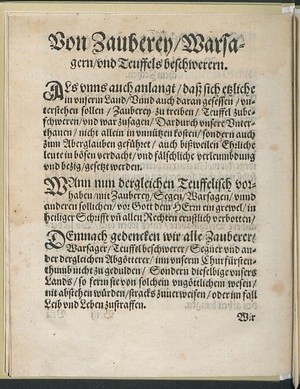 Von Zauberey/Warsa-
gern/vnd Teuffels beschwerern.
Als vnns auch anlangt/daß sich etzliche
in vnsern Land/Vnnd auch daran gesessen/vn-
terstehen sollen/Zauberey zu treiben/Teuffel zube-
schweren/vnd war zusagen/Dardurch vnsere Vnter-
thanen/nicht allein in vnnützen kosten/sondern auch
zum Aberglauben geführet/auch bißweilen Ehrliche
leute in bösen verdacht/vnd fälschliche verleumbdung
vnd bezig/gesetzt werden.
Wann nun dergleichen Teuffelisch vor-
haben/mit Zauberey/Segen/Warsagen/vnnd
anderen sollichen/vor Gott dem HErrn ein grewel/in
heiliger Schrifft vñ allen Rechten ernstlich verbotten/
Demnach gedencken wir alle Zauberer/
Warsager/Teuffelbeschwerer/Segner vnd an-
der dergleichen Abgötterer/inn vnserm Churfürsten-
thumb nicht zu gedulden/Sondern dieselbige vnsers
Lands/so fern sie von solchem vngöttlichem wesen/
nit abstehen würden/stracks zuuerweisen/oder im fall
Leib vnd Leben zustraffen.
Wir